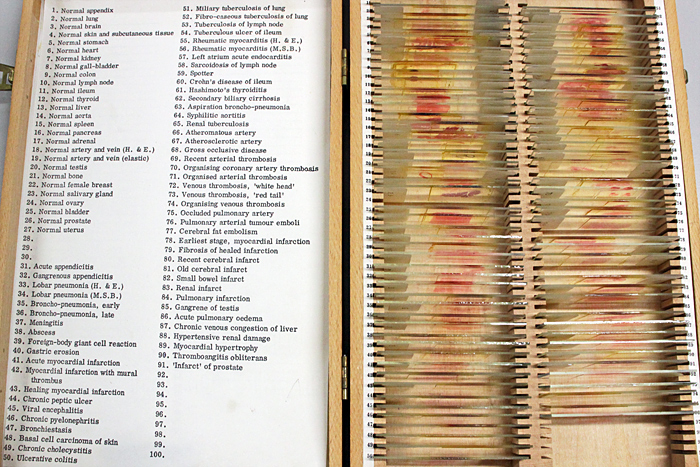 1. Normal appendix
2. Normal lung
3. Normal brain
4. Normal skin and subcutaneous tissue
5. Normal stomach
6. Normal heart
7. Normal kidney
8. Normal gall-bladder
9. Normal colon
10. Normal lymph node
11. Normal ileum
12. Normal thyroid
13. Normal liver
14. Normal aorta
15. Normal spleen
16. Normal pancreas
17. Normal adrenal
18. Normal artery and vein (H. & E.)
19. Normal artery and vein (elastic)
20. Normal testis
21. Normal bone
22. Normal female breast
23. Normal salivary gland
24. Normal ovary
25. Normal bladder
26. Normal prostate
27. Normal uterus
28.
29.
30.
31. Acute appendicitis
32. Gangrenous appendicitis
33. Lobar pneumonia (H. & E.)
34. Lobar pneumonia (M.S.B.)
35. Broncho-pneumonia, early
36. Broncho-pneumonia, late
37. Meningitis
38. Abscess
39. Foreign-body giant cell reaction
40. Gastric erosion
41. Acute myocardial infarction
42. Myocardial infarction with mural
thrombus
43. Healing myocardial infarction
44. Chronic peptic ulcer
45. Viral encephalitis
46. Chronic pyelonephritis
47. Bronchiestasis
48. Basal cell carcinoma of skin
49. Chronic cholecystitis
50. Ulcerative colitis
51. Miliary tuberculosis of lung
52. Fibro-caseous tuberculosis of lung
53. Tuberculosis of lymph node
54. Tuberculous ulcer of ileum
55. Rheumatic myocarditis (H. & E.)
56. Rheumatic myocarditis (M.S.B.)
57. Left atrium acute endocarditis
58. Sarcoidosis of lymph node
59. Spotter
60. Crohn's disease of ileum
61. Hashimoto's thyroiditis
62. Secondary biliary cirrhosis
63. Aspiration broncho-pneumonia
64. Syphilitic aortitis
65. Renal tuberculosis
66. Atheromatous artery
67. Atherosclerotic artery
68. Gross occlusive disease
69. Recent arterial thrombosis
70. Organising coronary artery thrombosis
71. Organised arterial thrombosis
72. Venous thrombosis, 'white head'
73. Venous thrombosis, 'red tail'
74. Organising venous thrombosis
75. Occluded pulmonary artery
76. Pulmonary arterial tumour emboli
77. Cerebral fat embolism
78. Earliest stage, myocardial infarction
79. Fibrosis of healed infarction
80. Recent cerebral infarct
81. Old cerebral infarct
82. Small bowel infarct
83. Renal infarct
84. Pulmonary infarction
85. Gangrene of testis
86. Acute pulmonary oedema
87. Chronic venous congestion of liver
88. Hypertensive renal damage
89. Myocardial hypertrophy
90. Thromboangitis obliterans
91. 'Infarct' of prostate
92.
93.
94.
95.
96.
97.
98.
99.
100.